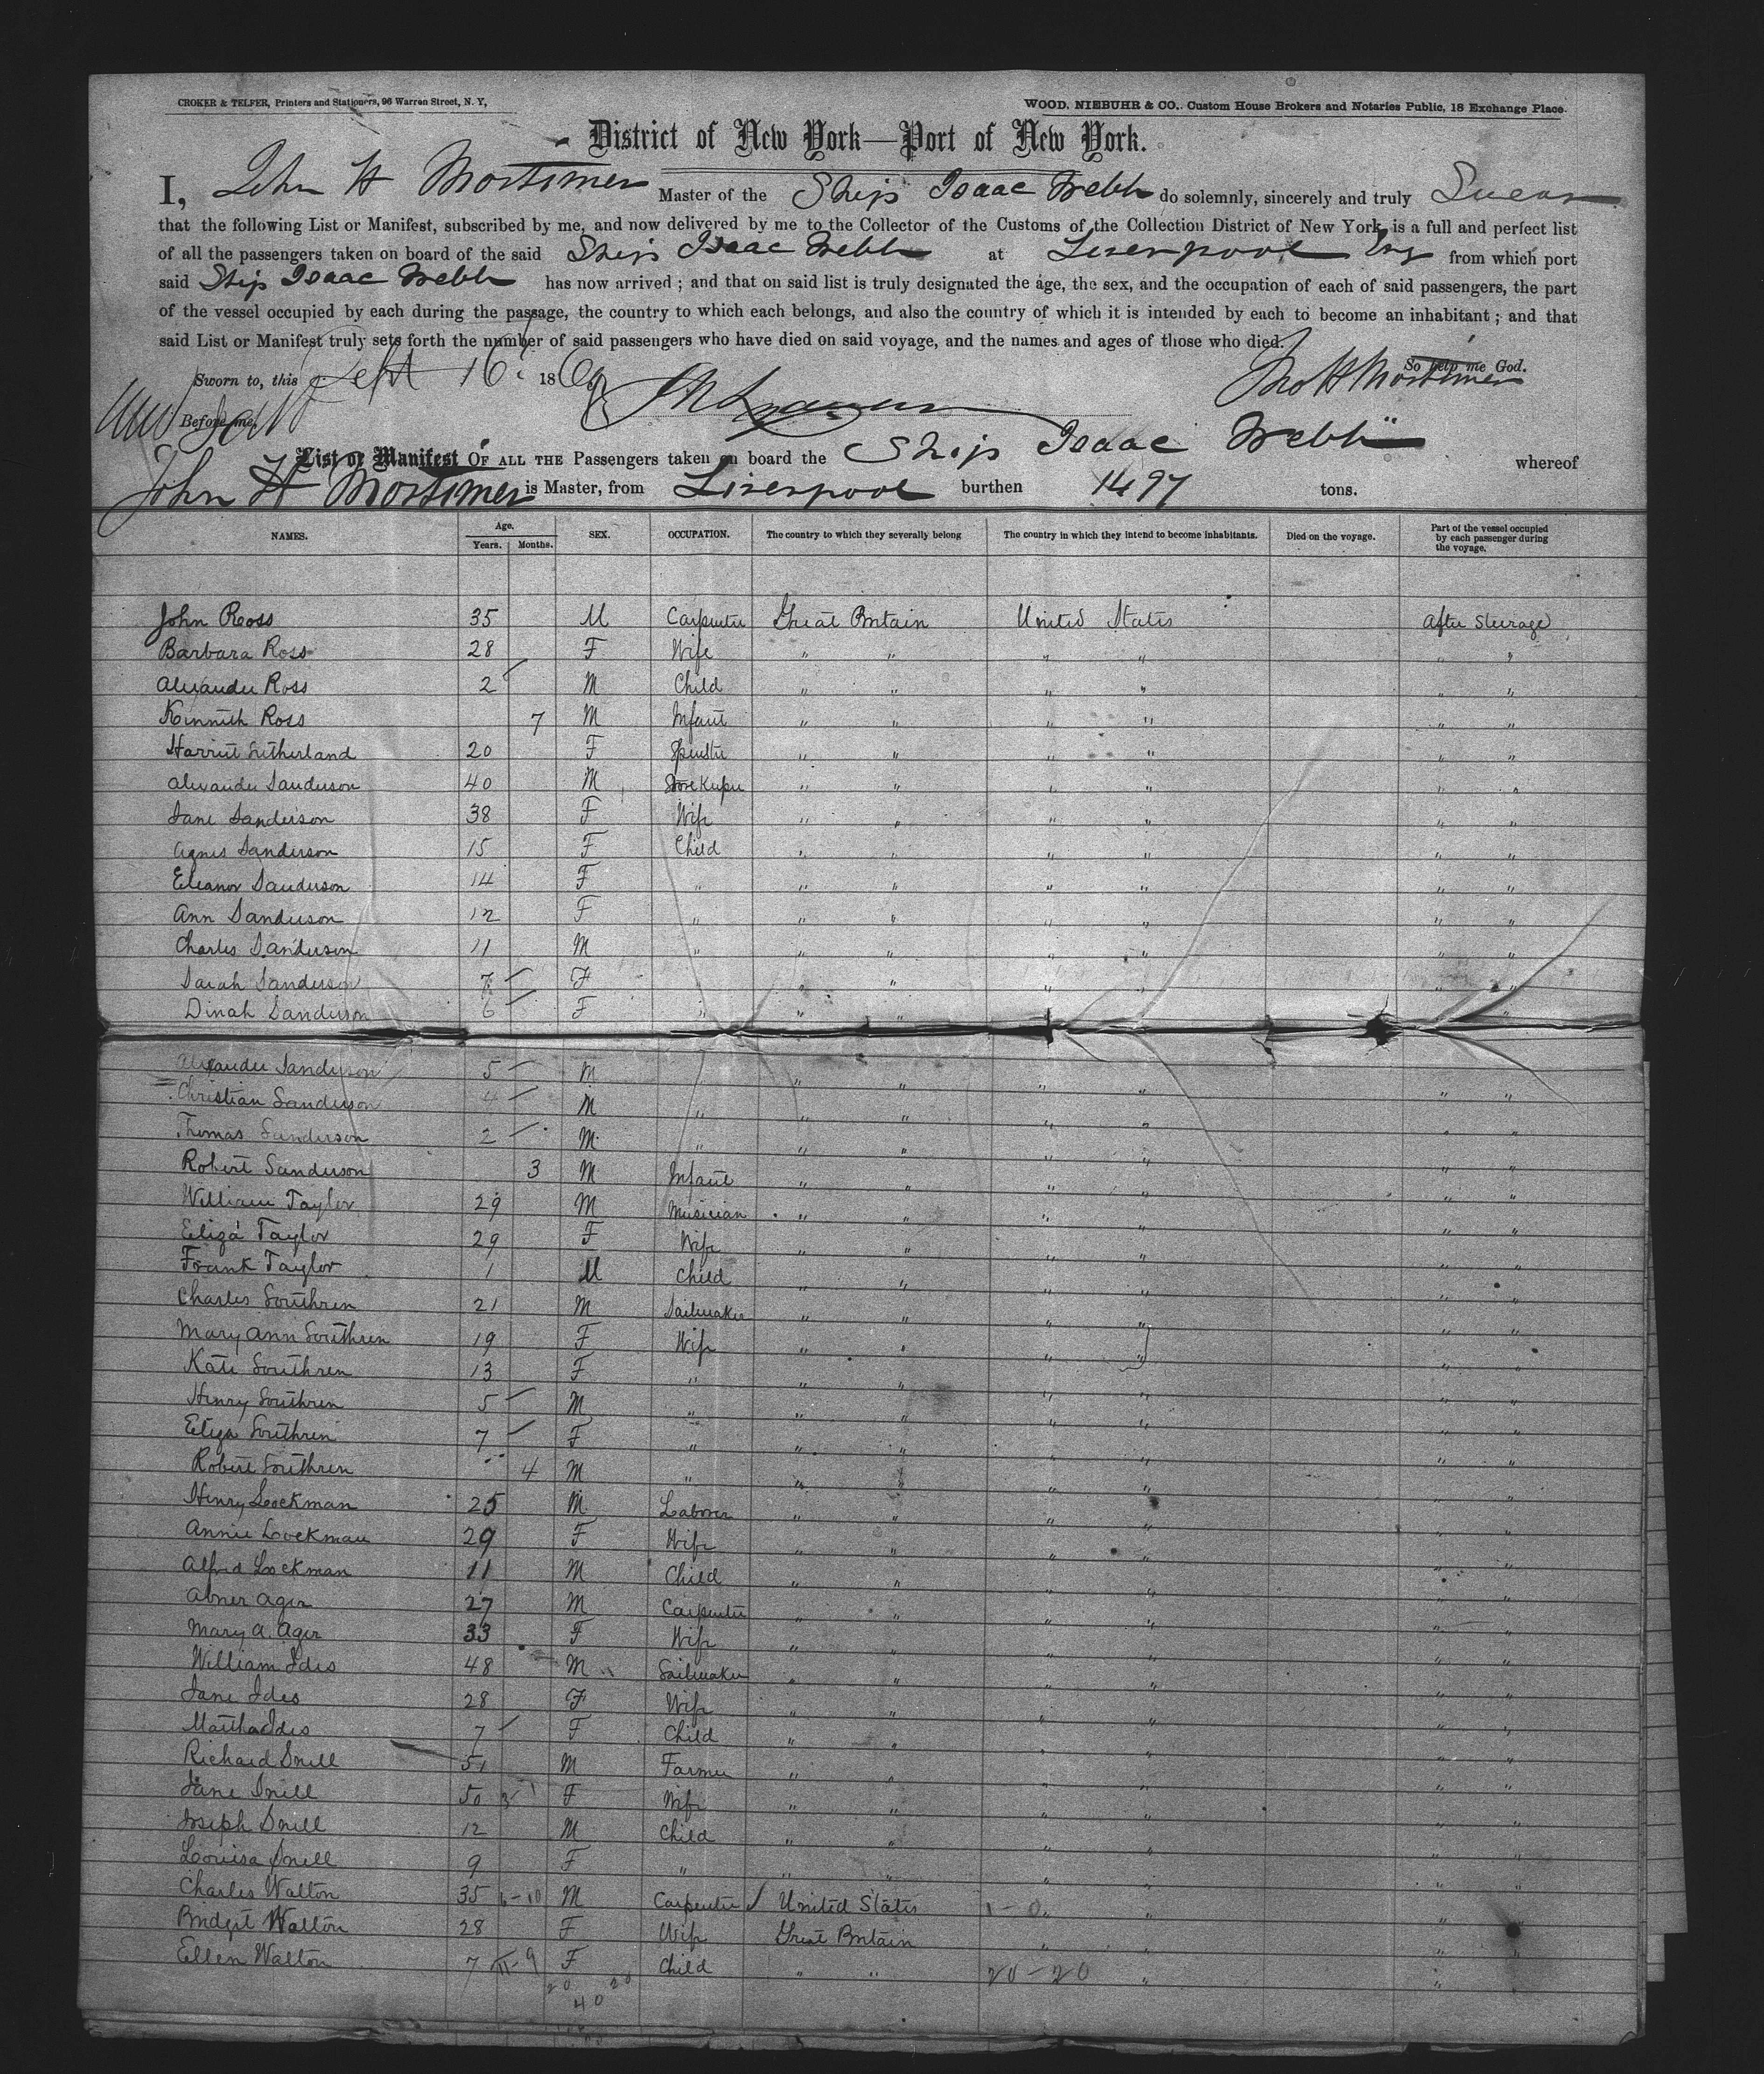 CROKER & TELFER, Printers and Stationers, 96 Warren Street, N. Y,
WOOD, NIEBUHR & CO., Custom House Brokers and Notaries Public, 18 Exchange Place.
District of New York—Port of New York.
I, John H Mortimer Master of the Ship Isaac Webb do solemnly, sincerely and truly Swear
that the following List or Manifest, subscribed by me, and now delivered by me to the Collector of the Customs of the Collection District of New York, is a full and perfect list
of all the passengers taken on board of the said Ship Isaac Webb at Liverpool Eng from which port
said Ship Isaac Webb has now arrived ; and that on said list is truly designated the age, the sex, and the occupation of each of said passengers, the part
of the vessel occupied by each during the passage, the country to which each belongs, and also the country of which it is intended by each to become an inhabitant ; and that
said List or Manifest truly sets forth the number of said passengers who have died on said voyage, and the names and ages of those who died.
So help me God.
Sworn to, this Sept 16 1869 Jno H Mortimer
Before me,
List or Manifest OF ALL THE Passengers taken on board the Ship Isaac Webb whereof
John H Mortimer is Master, from Liverpool burthen 1497 tons.
NAMES. Age. Years. Months. SEX. OCCUPATION. The country to which they severally belong The country in which they intend to become inhabitants. Died on the voyage. Part of the vessel occupied by each passenger during the voyage.
John Ross 35 M Carpenter Great Britain United States After Steerage
Barbara Ross 28 F Wife " " " " " "
Alexander Ross 2 M Child " " " " " "
Kinnith Ross 7 M Infant " " " " " "
Harriet Sutherland 20 F Spinster " " " " " "
Alexander Sanderson 40 M Storekeeper " " " " " "
Jane Sanderson 38 F Wife " " " " " "
Agnes Sanderson 15 F Child " " " " " "
Eleanor Sanderson 14 F " " " " " " "
Ann Sanderson 12 F " " " " " " "
Charles Sanderson 11 M " " " " " " "
Sarah Sanderson 7 F " " " " " "
Dinah Sanderson 6 F " " " "
Alexander Sanderson 5 M " " " " " "
Christian Sanderson 4 M " " " " " " "
Thomas Sanderson 2 M " " " " " " "
Robert Sanderson 3 M Infant " " " " " "
William Taylor 29 M Musician " " " " " "
Eliza Taylor 29 F Wife " " " " " "
Frank Taylor 1 M Child " " " " " "
Charles Southren 21 M Sailmaker " " " " " "
Mary Ann Southren 19 F Wife " " " " " "
Kate Southren 13 F " " " " " " "
Henry Southren 5 M " " " " " " "
Eliza Southren 7 F " " " " " " "
Robert Southren 4 M " " " " " " "
Henry Lockman 25 M Laborer " " " " " "
Annie Lockman 29 F Wife " " " " " "
Alfred Lockman 11 M Child " " " " " "
Abner Ager 27 M Carpenter " " " " " "
Mary A. Ager 33 F Wife " " " " " "
William Ides 48 M Sailmaker " " " " " "
Jane Ides 28 F Wife " " " " " "
Martha Ides 7 F Child " " " " " "
Richard Snell 51 M Farmer " " " " " "
Jane Snell 50 F Wife " " " " " "
Joseph Snell 12 M Child " " " " " "
Louisa Snell 9 F " " " " " " "
Charles Walton 35 6-10 M Carpenter United States 1-0 " " " "
Bridget Walton 28 F Wife Great Britain " " " "
Ellen Walton 7 F Child " " 20-20 " "
20 20
40